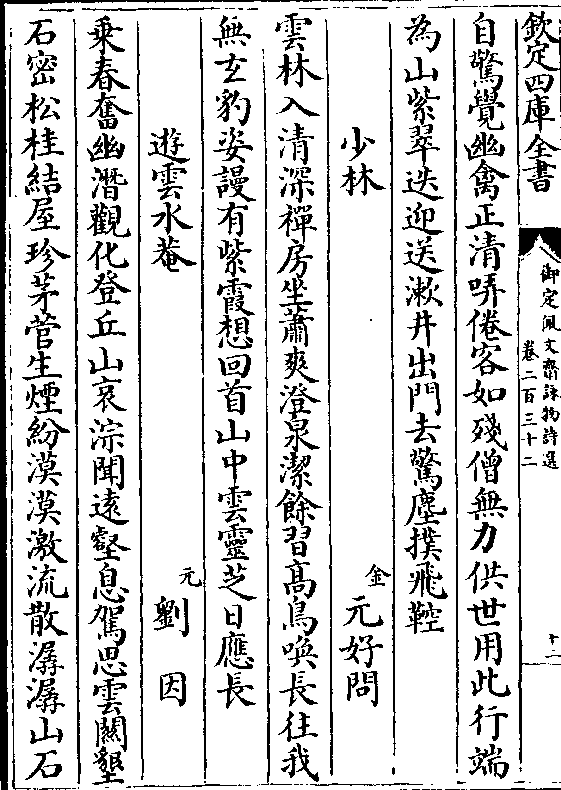 欽定四庫全書
御定佩文齋詠物詩選
卷二百三十二
十二
自驚覺幽禽正清哢倦客如殘僧無力供世用此行端
為山紫翠迭迎送漱井出門去驚塵撲飛鞚
少林
金 元好問
雲林入清深禪房坐蕭爽澄泉潔餘習高鳥喚長往我
無玄豹姿謾有紫霞想回首山中雲靈芝日應長
遊雲水菴
元 劉因
乘春奮幽潛觀化登丘山哀淙聞遠壑息駕思雲關墾
石密松桂結屋珍茅菅生煙紛漠漠激流散潺潺山石